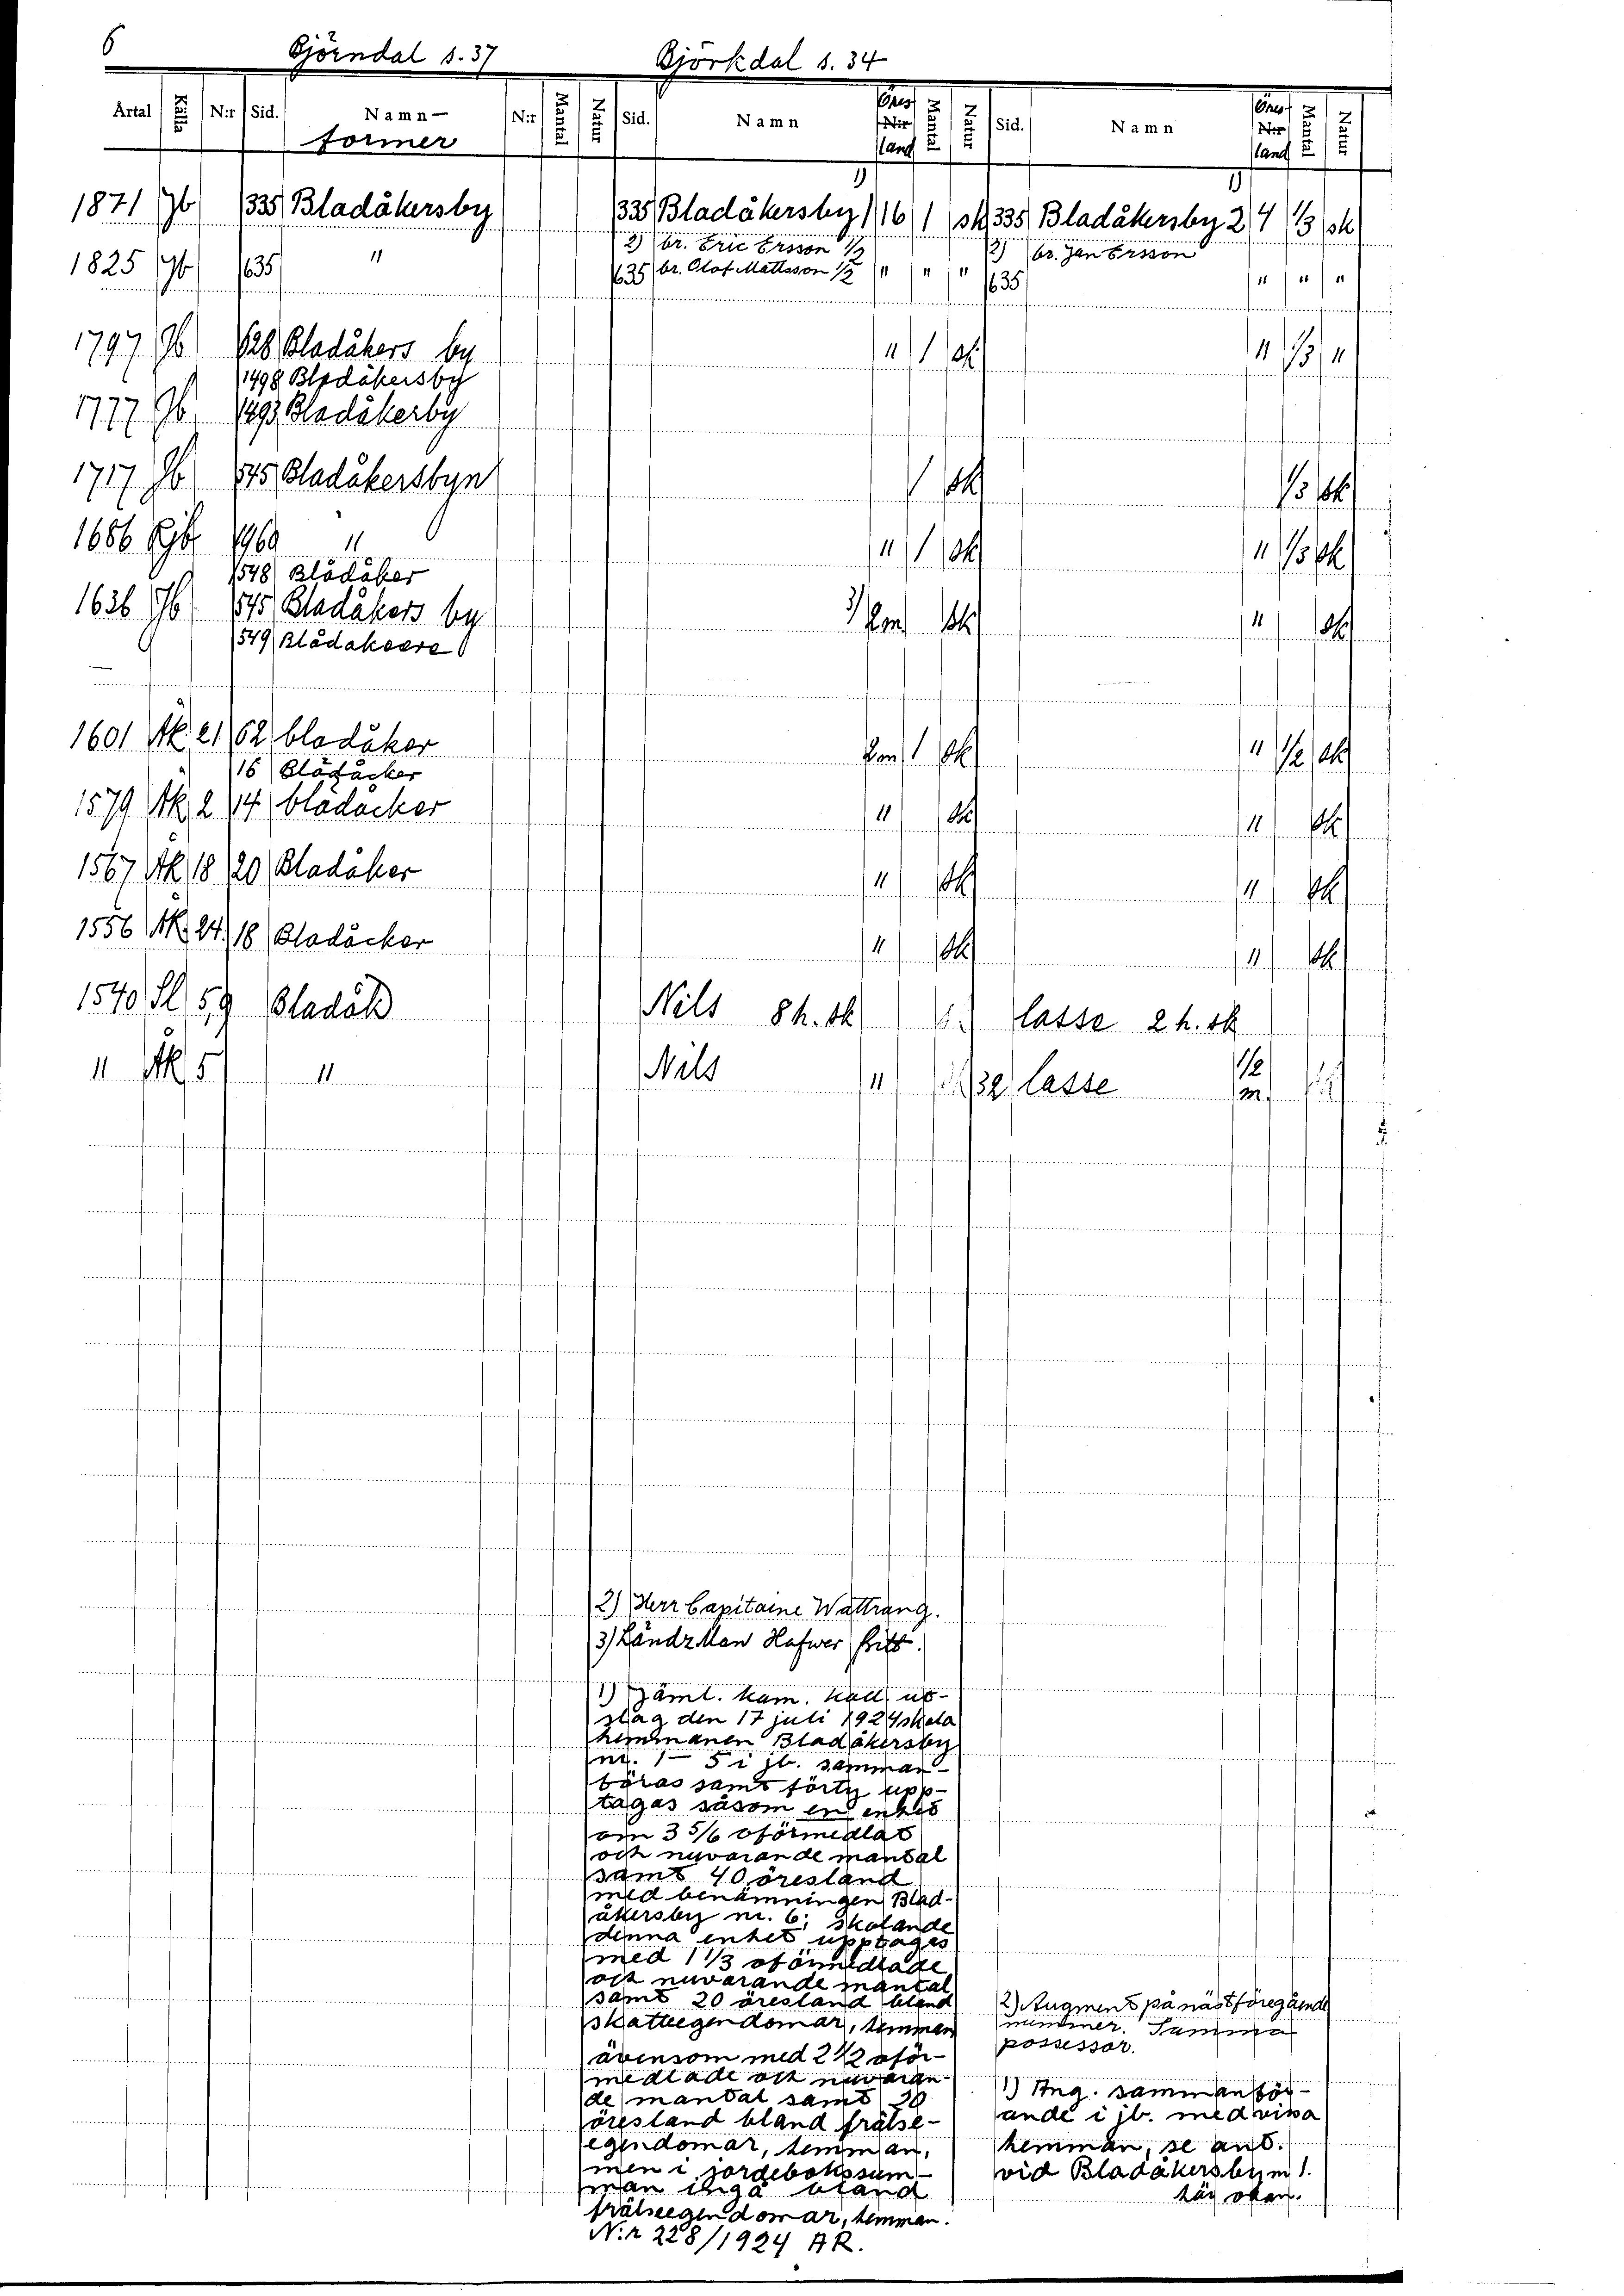 6 Björndal s. 37 Björkdal s. 34
Årtal N:r Sid. Namn- N:r Mantal Natur Sid. Namn Öres N:r land Mantal Natur Sid. Namn Öres N:r land Mantal Natur
former
1871 Jb 335 Bladåkersby 335 Bladåkersby 1 1) 16 1 sk 335 Bladåkersby 2 1) 4 1/3 sk
2) br. Eric Ersson 1/2 2) br. Jan Ersson
1825 Jb 635 " 635 br. Olof Mattsson 1/2 " " " 635 " " "
1797 Jb 628 Bladåkers by " 1 sk " 1/3 "
1498 Bladåkersby
1777 Jb 1493 Bladåkerby
1717 Jb 545 Bladåkersbyn 1 sk 1/3 sk
1686 1960 " " 1 sk " 1/3 sk
1548 Blådåker
1636 Jb 1545 Bladåkers by 3) sk " sk
1549 Blådakeere
1601 21 62 bladåker 1 sk " 1/2 sk
16 Blådåcker
1579 2 14 blådåcker " sk " sk
1567 18 20 Bladåker " sk " sk
1556 24 18 Bladåcker " sk " sk
1540 Sl 59 Bladåk Nils 8 h. sk lasse 2 h. sk
" 5 " Nils " 32 lasse 1/2 m
2) Herr Capitaine Wattrang.
3) Ländzman Hafwer
1) Jäml. kam. koll. ut-
slag den 17 juli 1924 skola
hemmanen Bladåkersby
nr. 1 – 5 i jb. samman-
föras samt förty upp-
tagas såsom en enhet
om 3 5/6 oförmedlat
och nuvarande mantal
samt 40 öresland
med benämningen Blad-
åkersby nr. 6; skolande
denna enhet upptages
med 1 1/3 oförmedlade
och nuvarande mantal
samt 20 öresland bland
skatteegendomar, hemman
ävensom med 2 1/2 oför-
medlade och nuvaran-
de mantal samt 20
öresland bland frälse-
egendomar, hemman,
men i jordebokssum-
man ingå bland
frälseegendomar, hemman.
N:r 228/1924 AR.
2) Augment på nästföregående
nummer. Samma
possessor.
1) Ang. sammanför-
ande i jb. med vissa
hemman, se ant.
vid Bladåkersby nr 1.
här ovan.